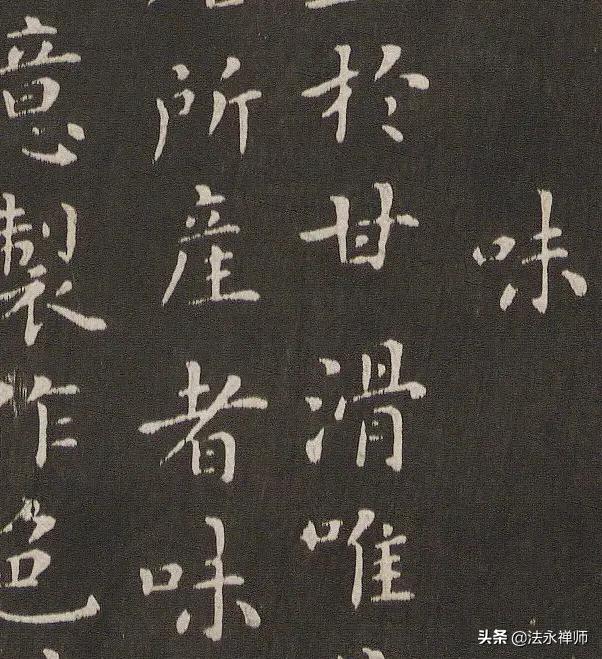 味
於甘滑唯
所産者味
意製作色
头条 @法永禅师